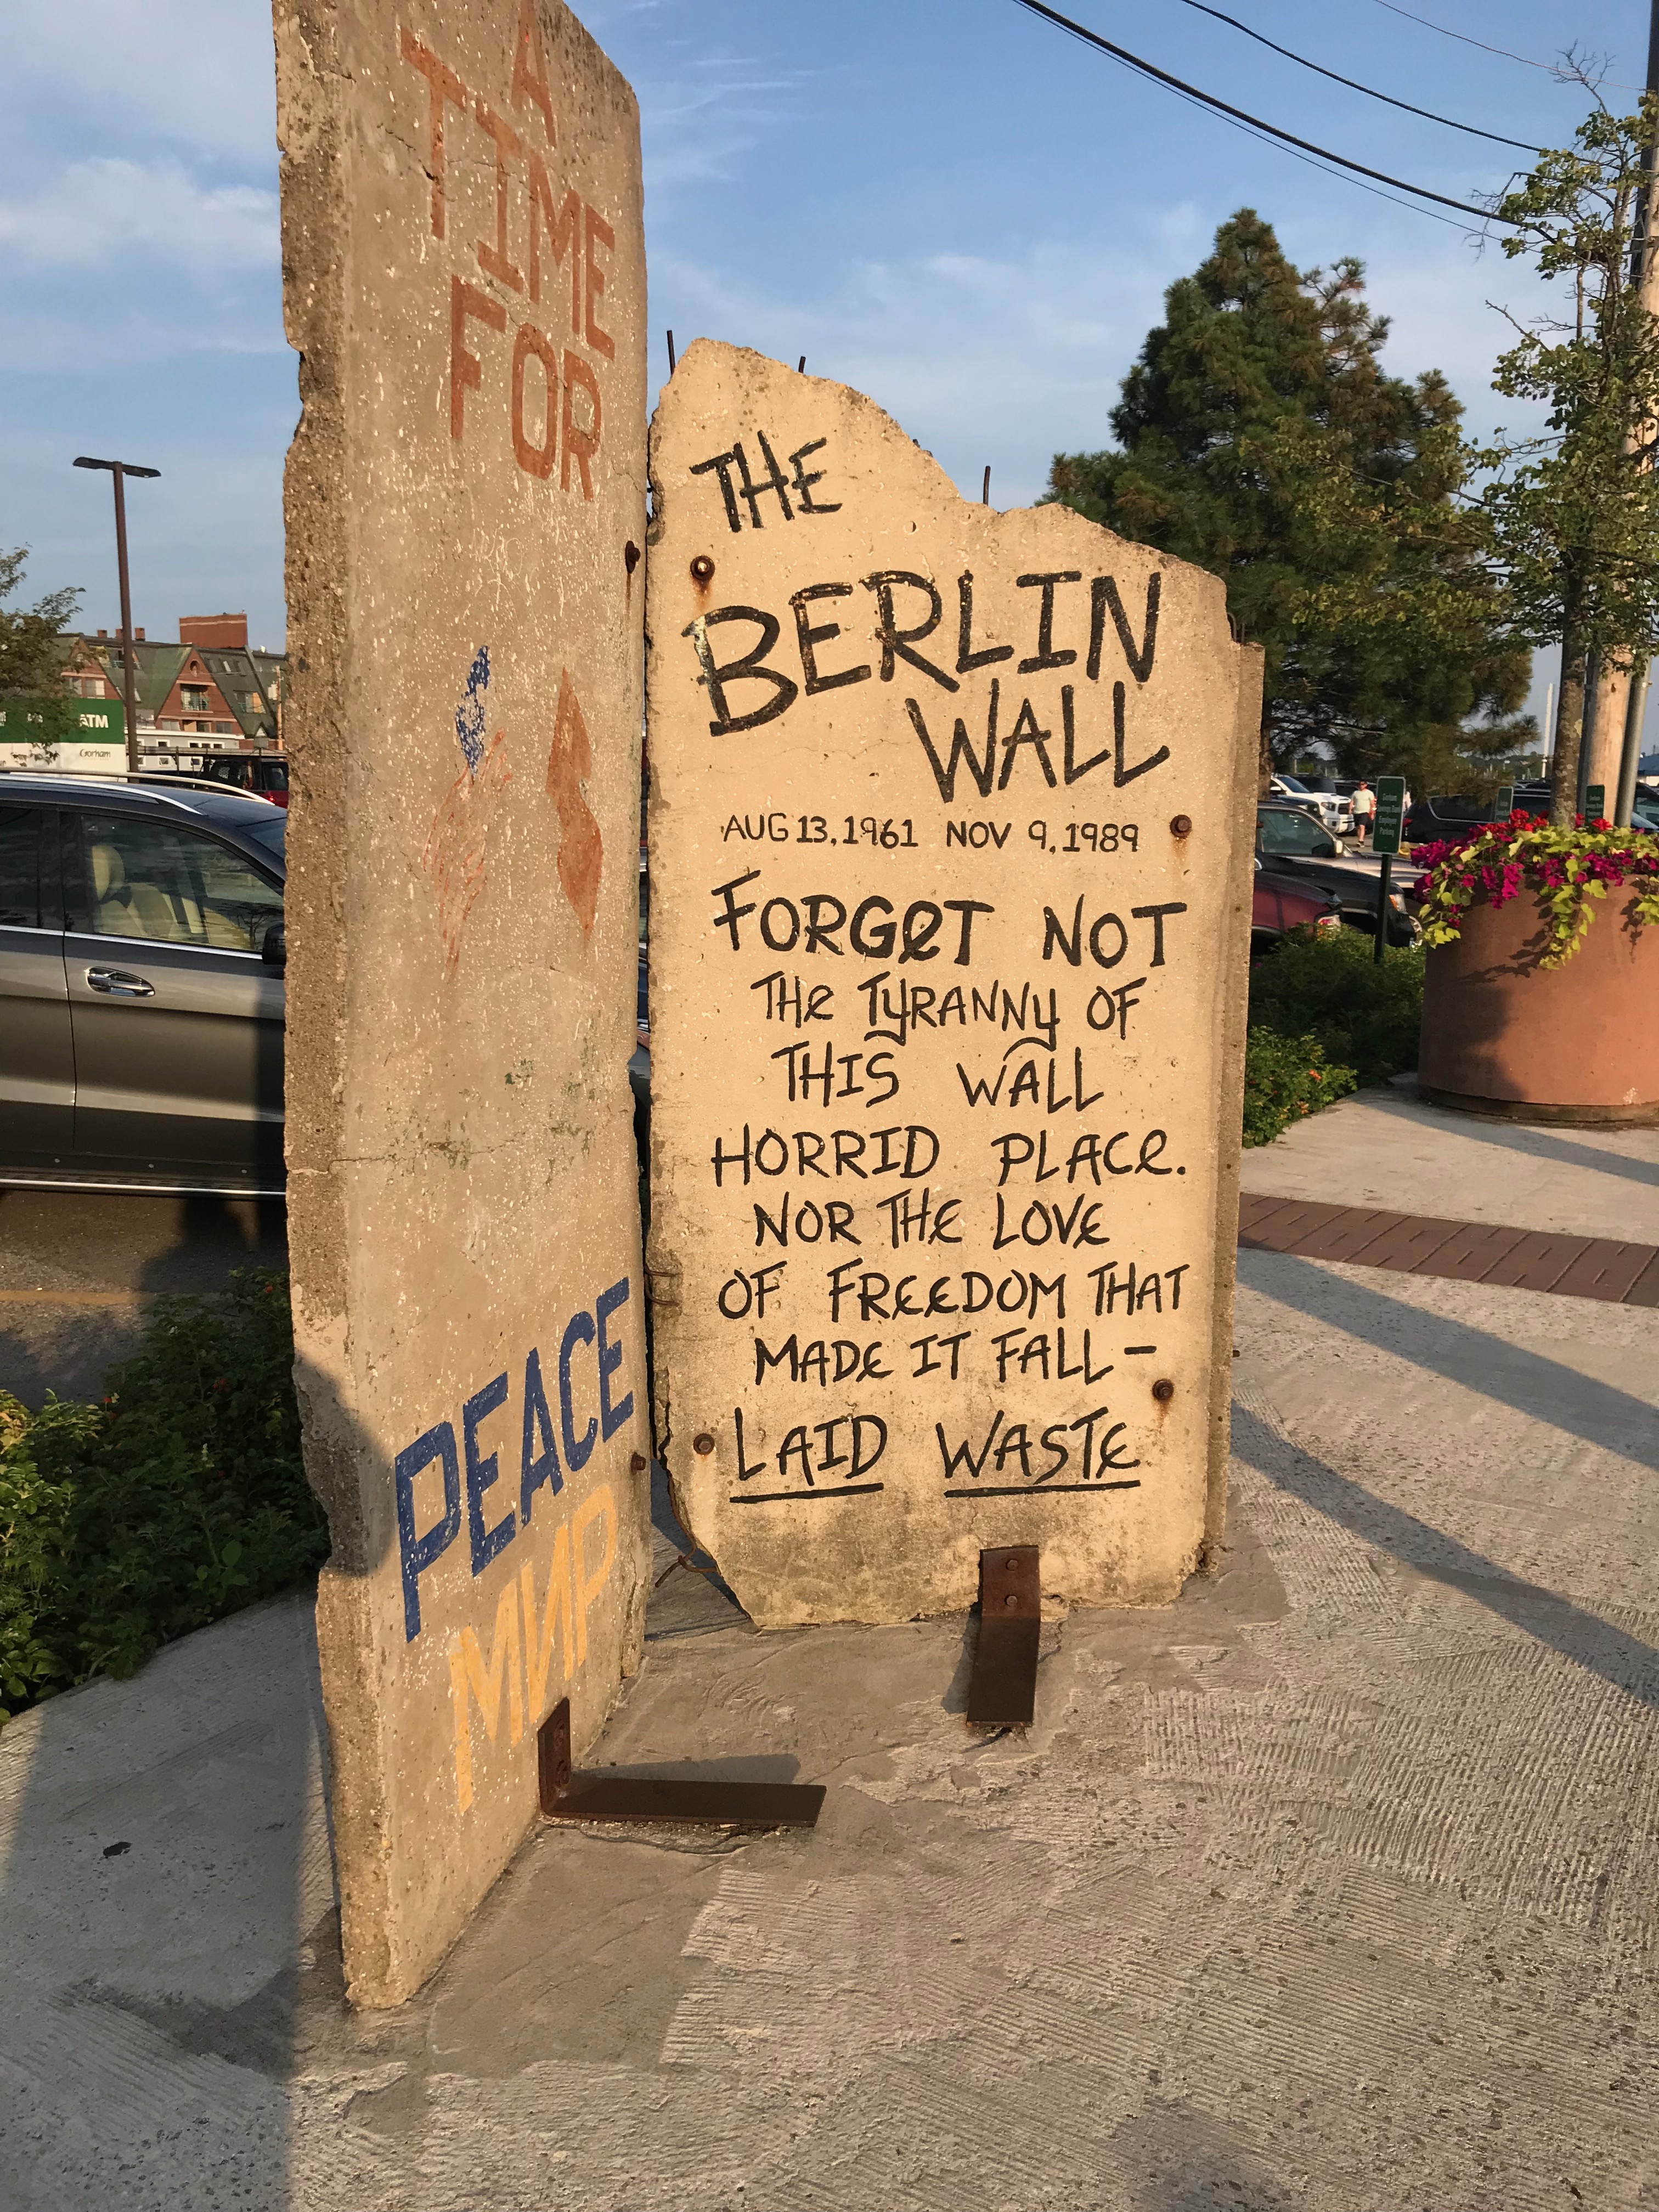 A
TIME
FOR
PEACE
МИР
THE
BERLIN
WALL
AUG 13, 1961 NOV 9, 1989
FORGET NOT
THE TYRANNY OF
THIS WALL
HORRID PLACE.
NOR THE LOVE
OF FREEDOM THAT
MADE IT FALL –
LAID WASTE
ATM
Gorham